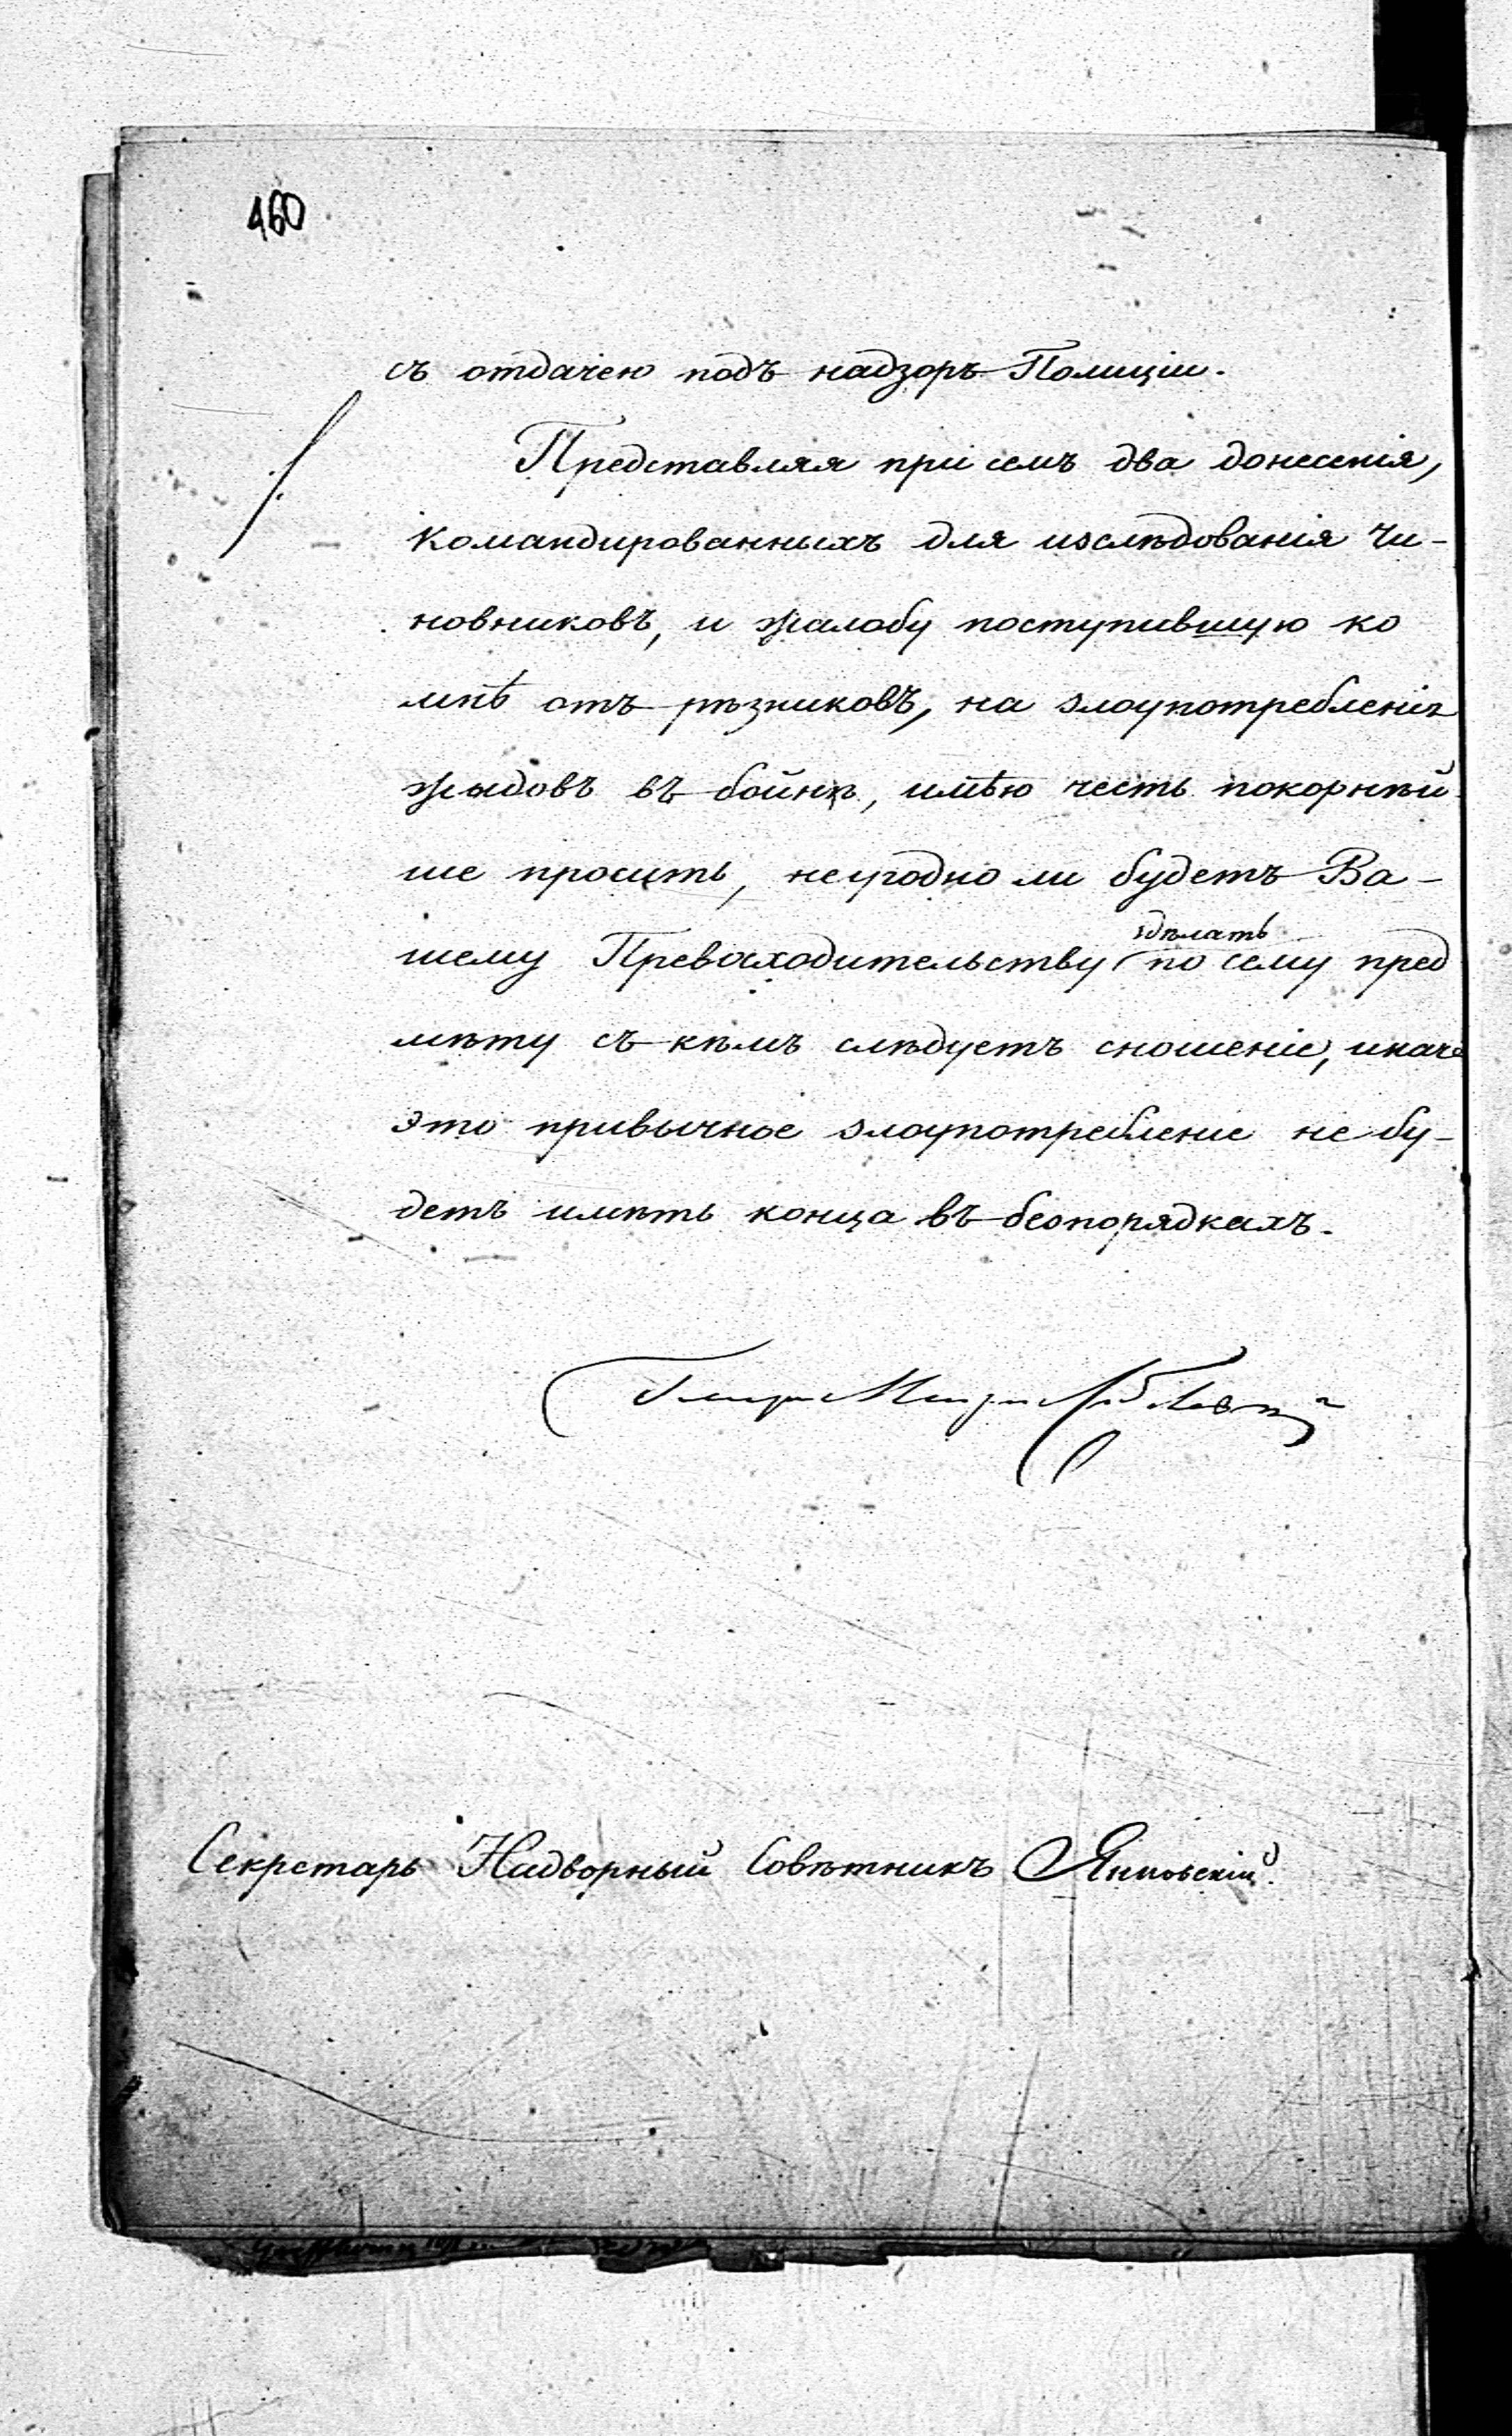 460
съ отдачею подъ надзоръ Полиціи.
Представляя при семъ два донесенія,
командированныхъ для изслѣдованія чи-
новниковъ, и жалобу поступившую ко
мнѣ отъ рѣзниковъ, на злоупотребленія
жыдовъ въ бойнѣ, имѣю честь покорнѣй
ше просить, неугодно ли будетъ Ва-
здѣлать
шему Превосходительству по сему пред
мѣту съ кѣмъ слѣдуетъ сношеніе, иначе
это привычное злоупотребленіе не бу-
детъ имѣть конца въ безпорядкахъ.
Секретарь Надворный Совѣтникъ Янковскій.